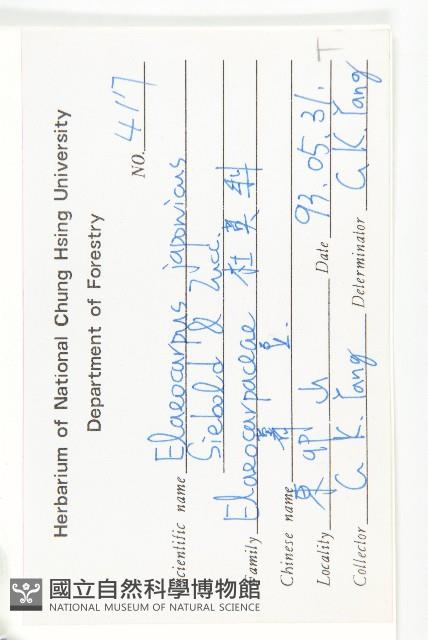 Herbarium of National Chung Hsing University
Department of Forestry
NO. 417
Scientific name Elaeocarpus japonicus
Siebold & Zucc.
Family Elaeocarpaceae 杜英科
Chinese name
Locality 東卯山 Date 93.05.31.
Collector C. K. Yang Determinator C. K. Yang
T
國立自然科學博物館
NATIONAL MUSEUM OF NATURAL SCIENCE